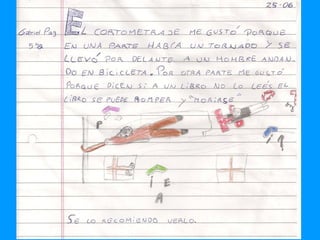 25-06
Gabriel Paz
5ºa
El cortometraje me gustó porque
en una parte había un tornado y se
llevó por delante a un hombre andan-
do en bicicleta. Por otra parte me gustó
porque dicen si a un libro no lo leés el
libro se puede romper y "morirse"
P
i E
A
Se lo recomiendo verlo.